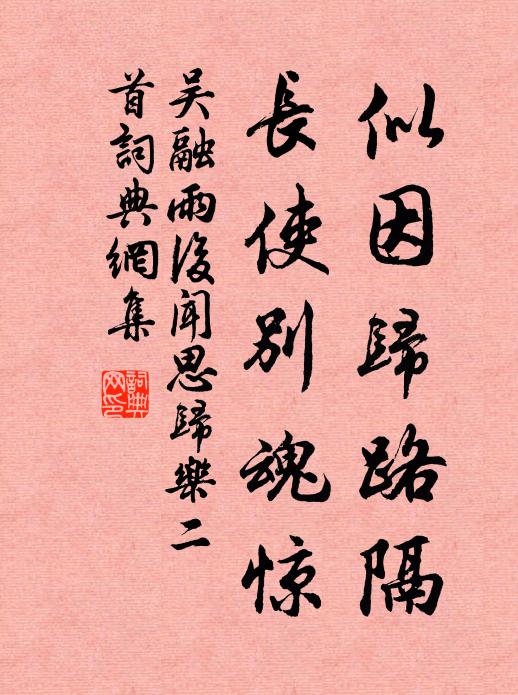 似因歸路隔
長使別魂惊
吴融雨後聞思歸樂二
首詞典網集
詞典网印